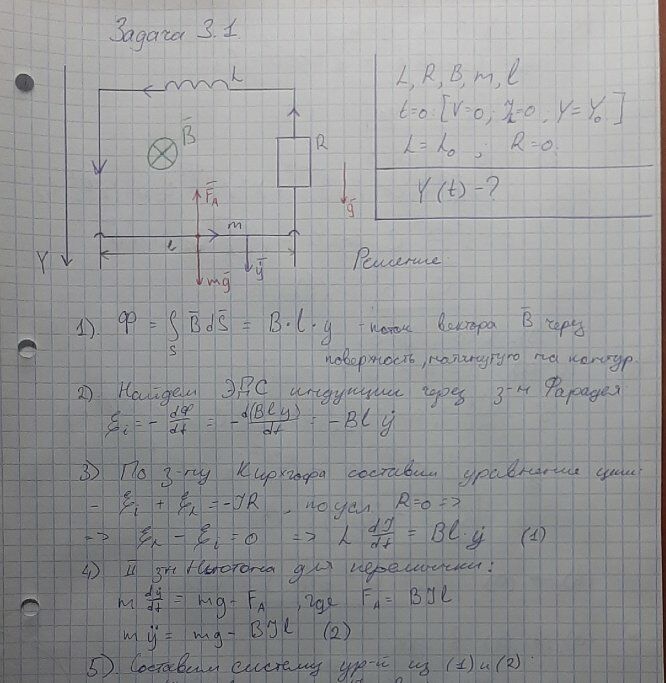 Задача 3.1
L
B̅
R
F̅_A
g̅
m
l
Y
mg̅
y̅
L, R, B, m, l
t=0: [V=0; J_L=0, Y=Y₀]
L = L₀ ; R=0.
Y(t) - ?
Решение:
1). Ф = ∫_S B̅ dS̅ = B·l·y - поток вектора B̅ через
поверхность, натянутую на контур.
2) Найдем ЭДС индукции через з-н Фарадея:
ℰ_i = - dФ/dt = - d(Bly)/dt = - Bl ẏ
3) По з-ну Кирхгофа составим уравнение цепи:
- ℰ_i + ℰ_L = -JR, по усл R=0 =>
=> ℰ_L - ℰ_i = 0 => L dJ/dt = Bl·ẏ (1)
4) II зн Ньютона для перемычки:
m dẏ/dt = mg - F_A, где F_A = BJl
mÿ = mg - BJl (2)
5). Составим систему ур-й из (1) и (2):